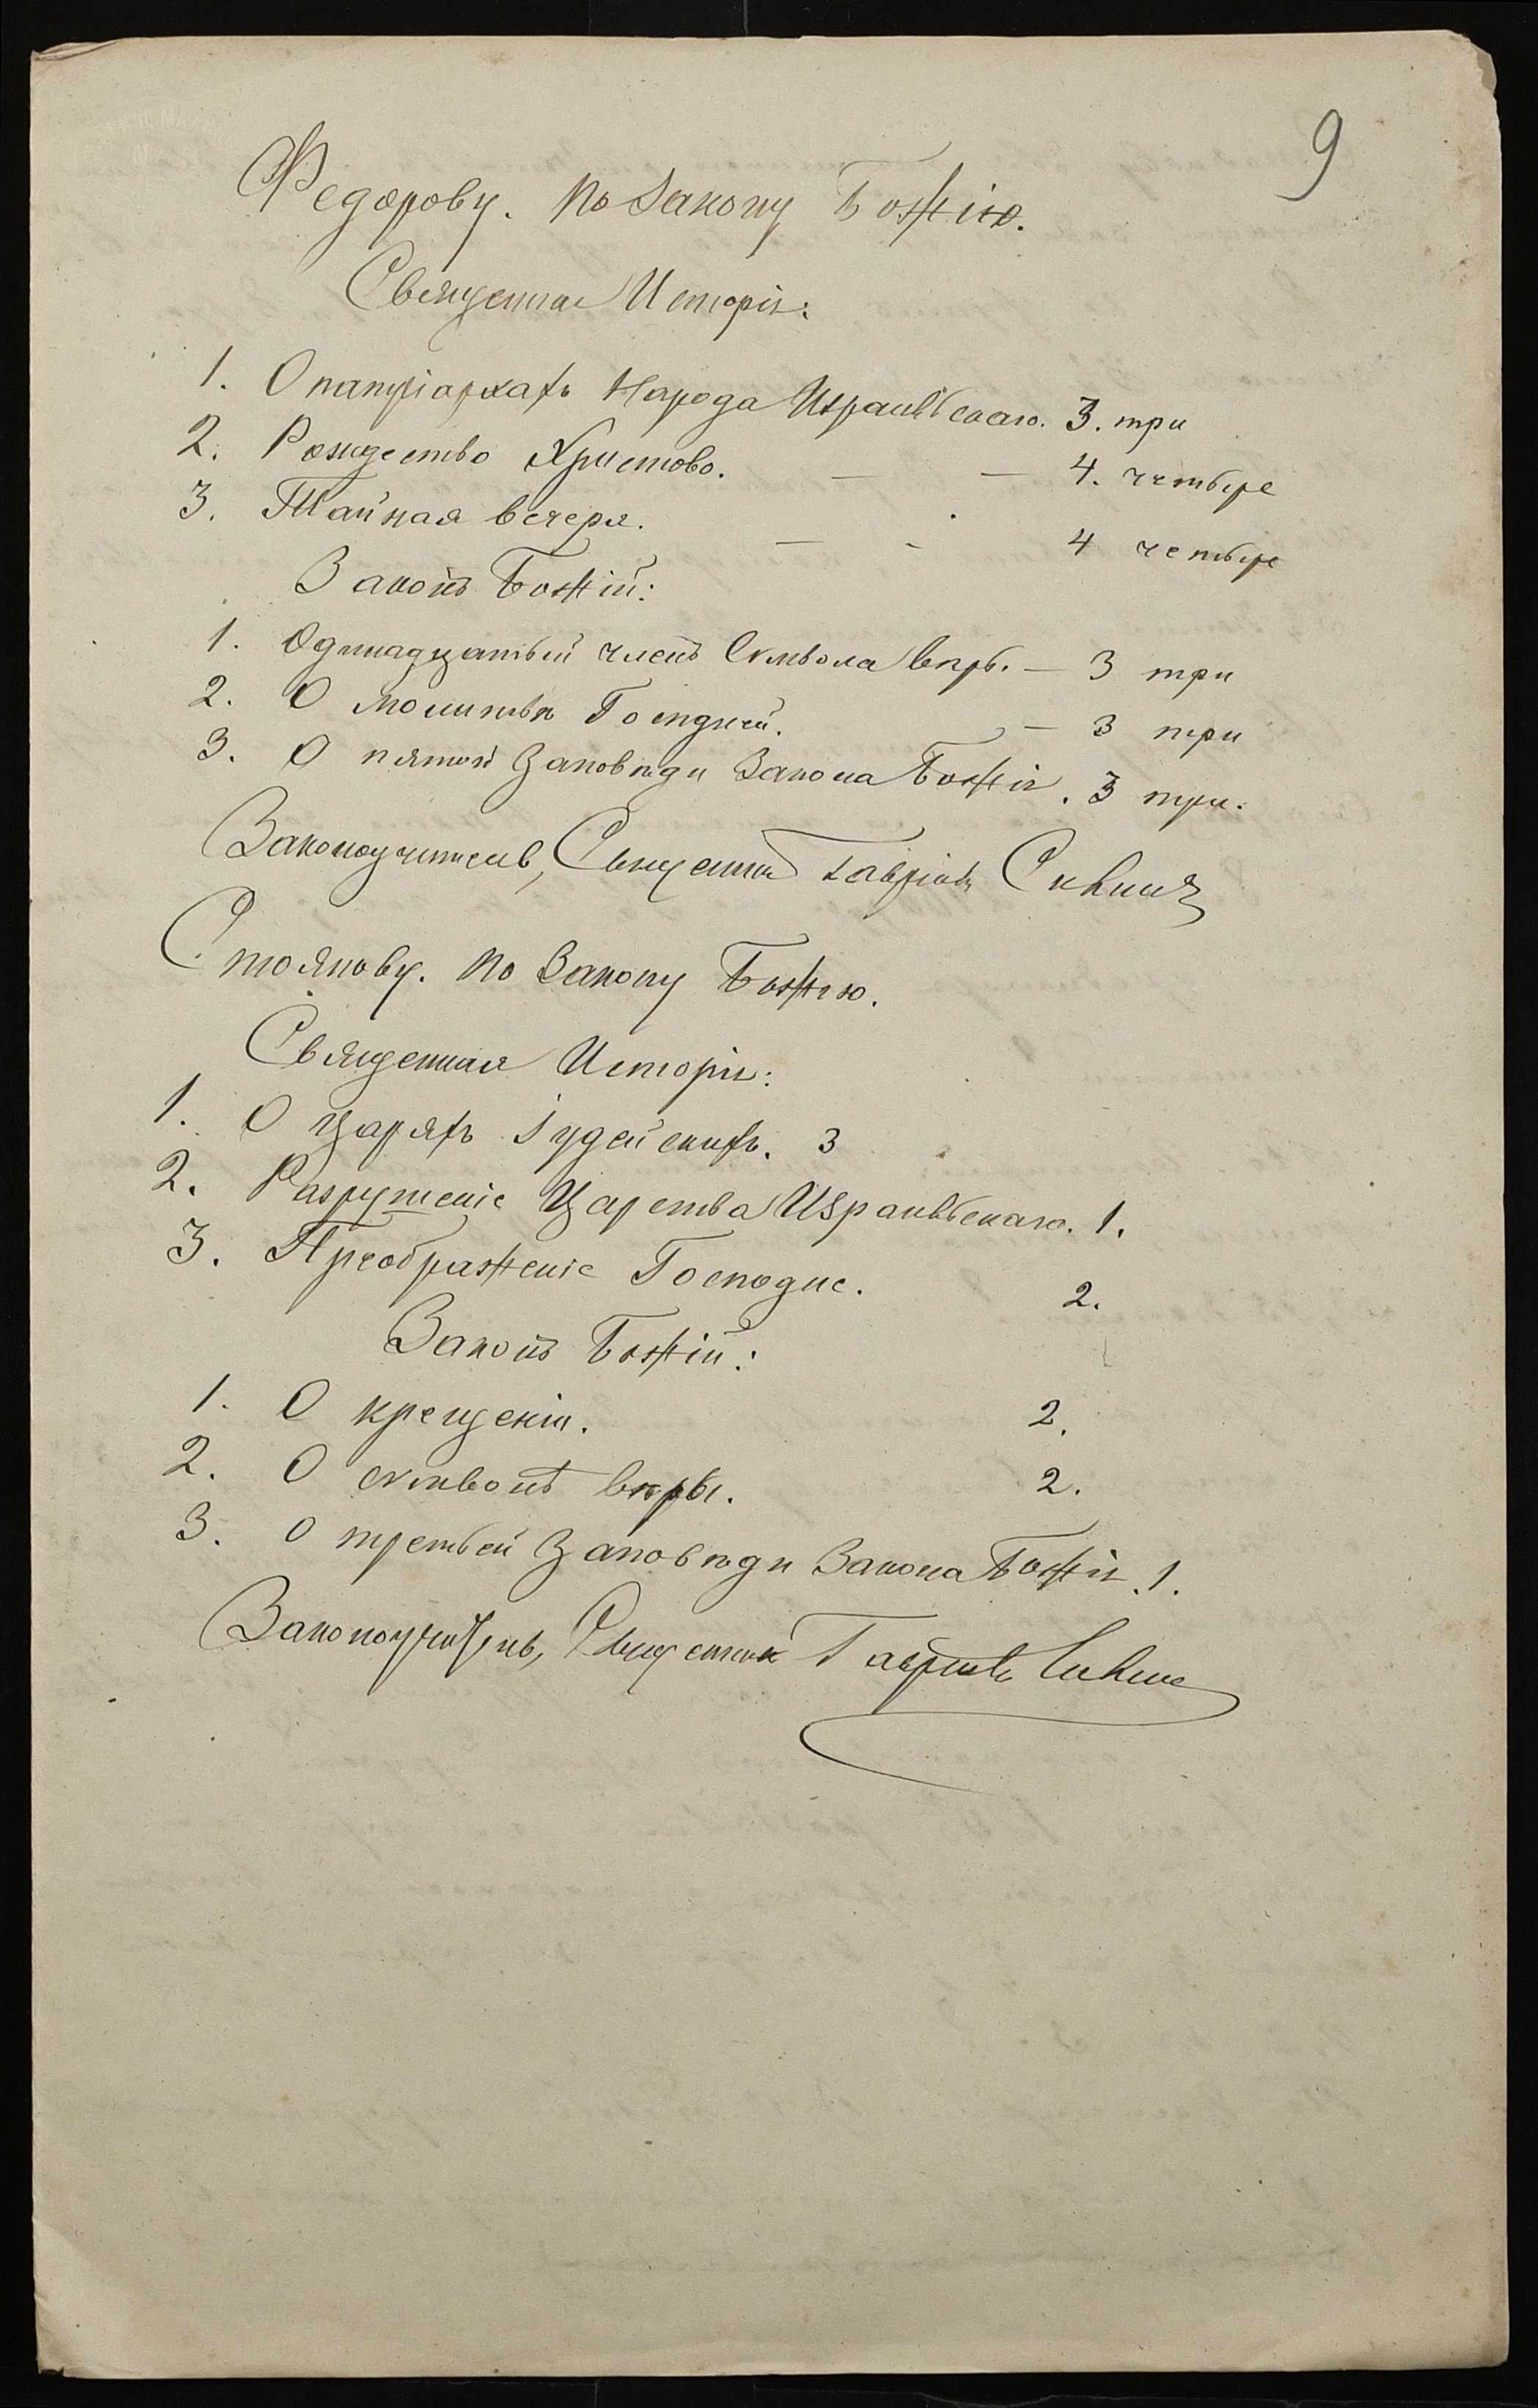 9
Федорову. По Закону Божію.
Священная Исторія:
1. О патріархахъ Народа Израильскаго. 3. три
2. Рождество Христово. — — 4. четыре
3. Тайная вечеря. — - 4 четыре
Законъ Божій:
1. Одинадцатый членъ Символа вѣры. — 3 три
2. О молитвѣ Господней. — 3 три
3. О пятой Заповѣди Закона Божія. 3 три.
Законоучитель, Священник Гавріилъ
Стоянову. По Закону Божію.
Священная Исторія:
1. О Царяхъ Іудейскихъ. 3
2. Разрушеніе Царства Израильскаго. 1.
3. Преображеніе Господне. 2.
Законъ Божій:
1. О крещеніи. 2.
2. О символѣ вѣры. 2.
3. О третьей Заповѣди Закона Божія. 1.
Законоучитель, Священник Гавріилъ